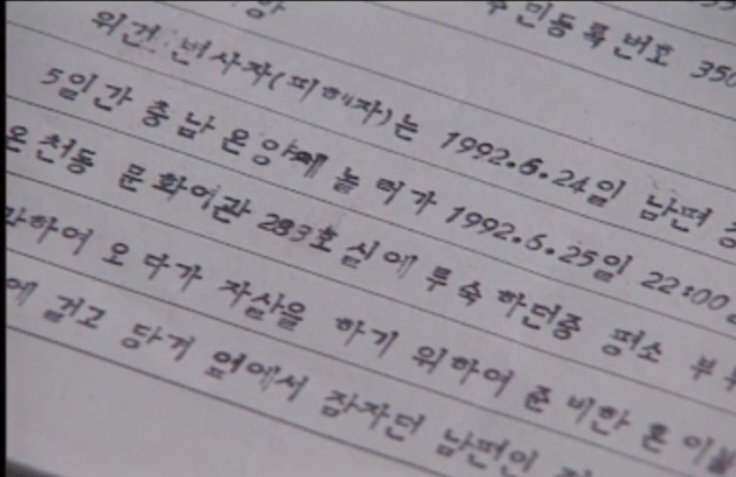 주민등록번호 350
위건 변사자(피해자)는 1992.6.24일 남편
5일간 충남 온양에 놀러가 1992.6.25일 22:00
온천동 문화여관 283호실에 투숙하던중 평소 부
과하여 오다가 자살을 하기 위하여 준비한 흔이불
에 걸고 당겨 옆에서 잠자던 남편인